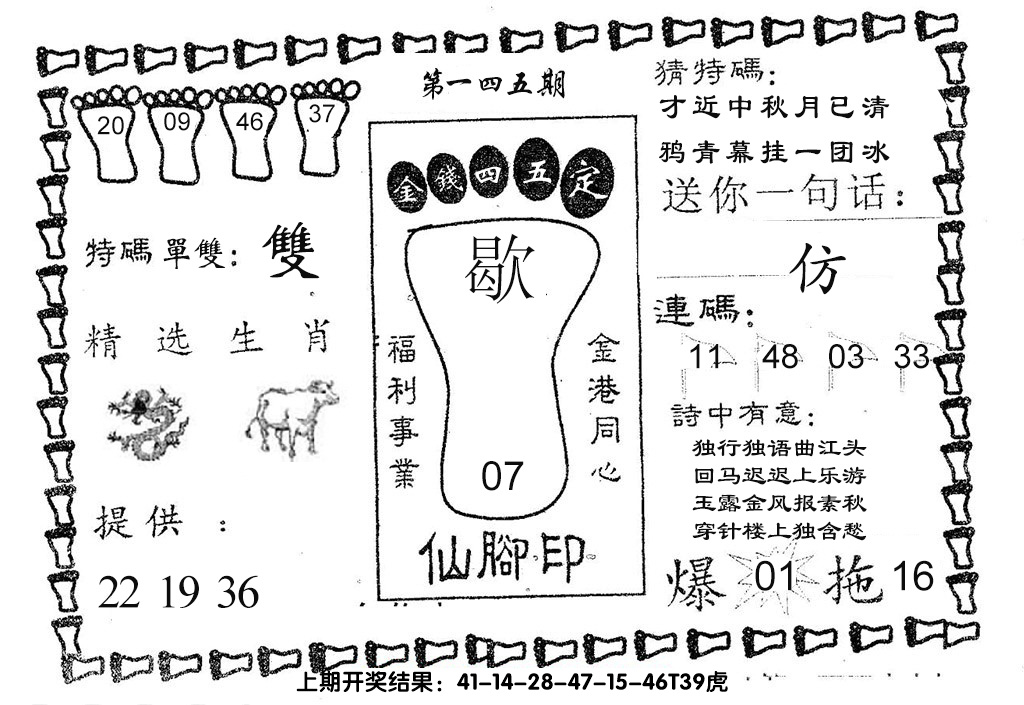 第一四五期
20 09 46 37
特碼單雙：雙
精选生肖
提供：
22 19 36
金錢四五定
歇
福利事業
金港同心
07
仙腳印
猜特碼：
才近中秋月已清
鸦青幕挂一团冰
送你一句话：
仿
連碼：
11 48 03 33
詩中有意：
独行独语曲江头
回马迟迟上乐游
玉露金风报素秋
穿针楼上独含愁
爆 01 拖 16
上期开奖结果：41-14-28-47-15-46T39虎